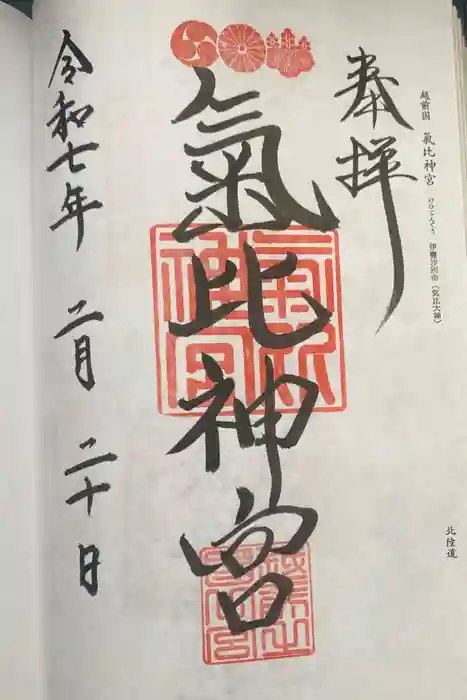 越前国 氣比神宮 けひじんぐう 伊奢沙別命(気比大神)
北陸道
奉拝
氣比神宮
令和七年 二月 二十日
氣比神宮